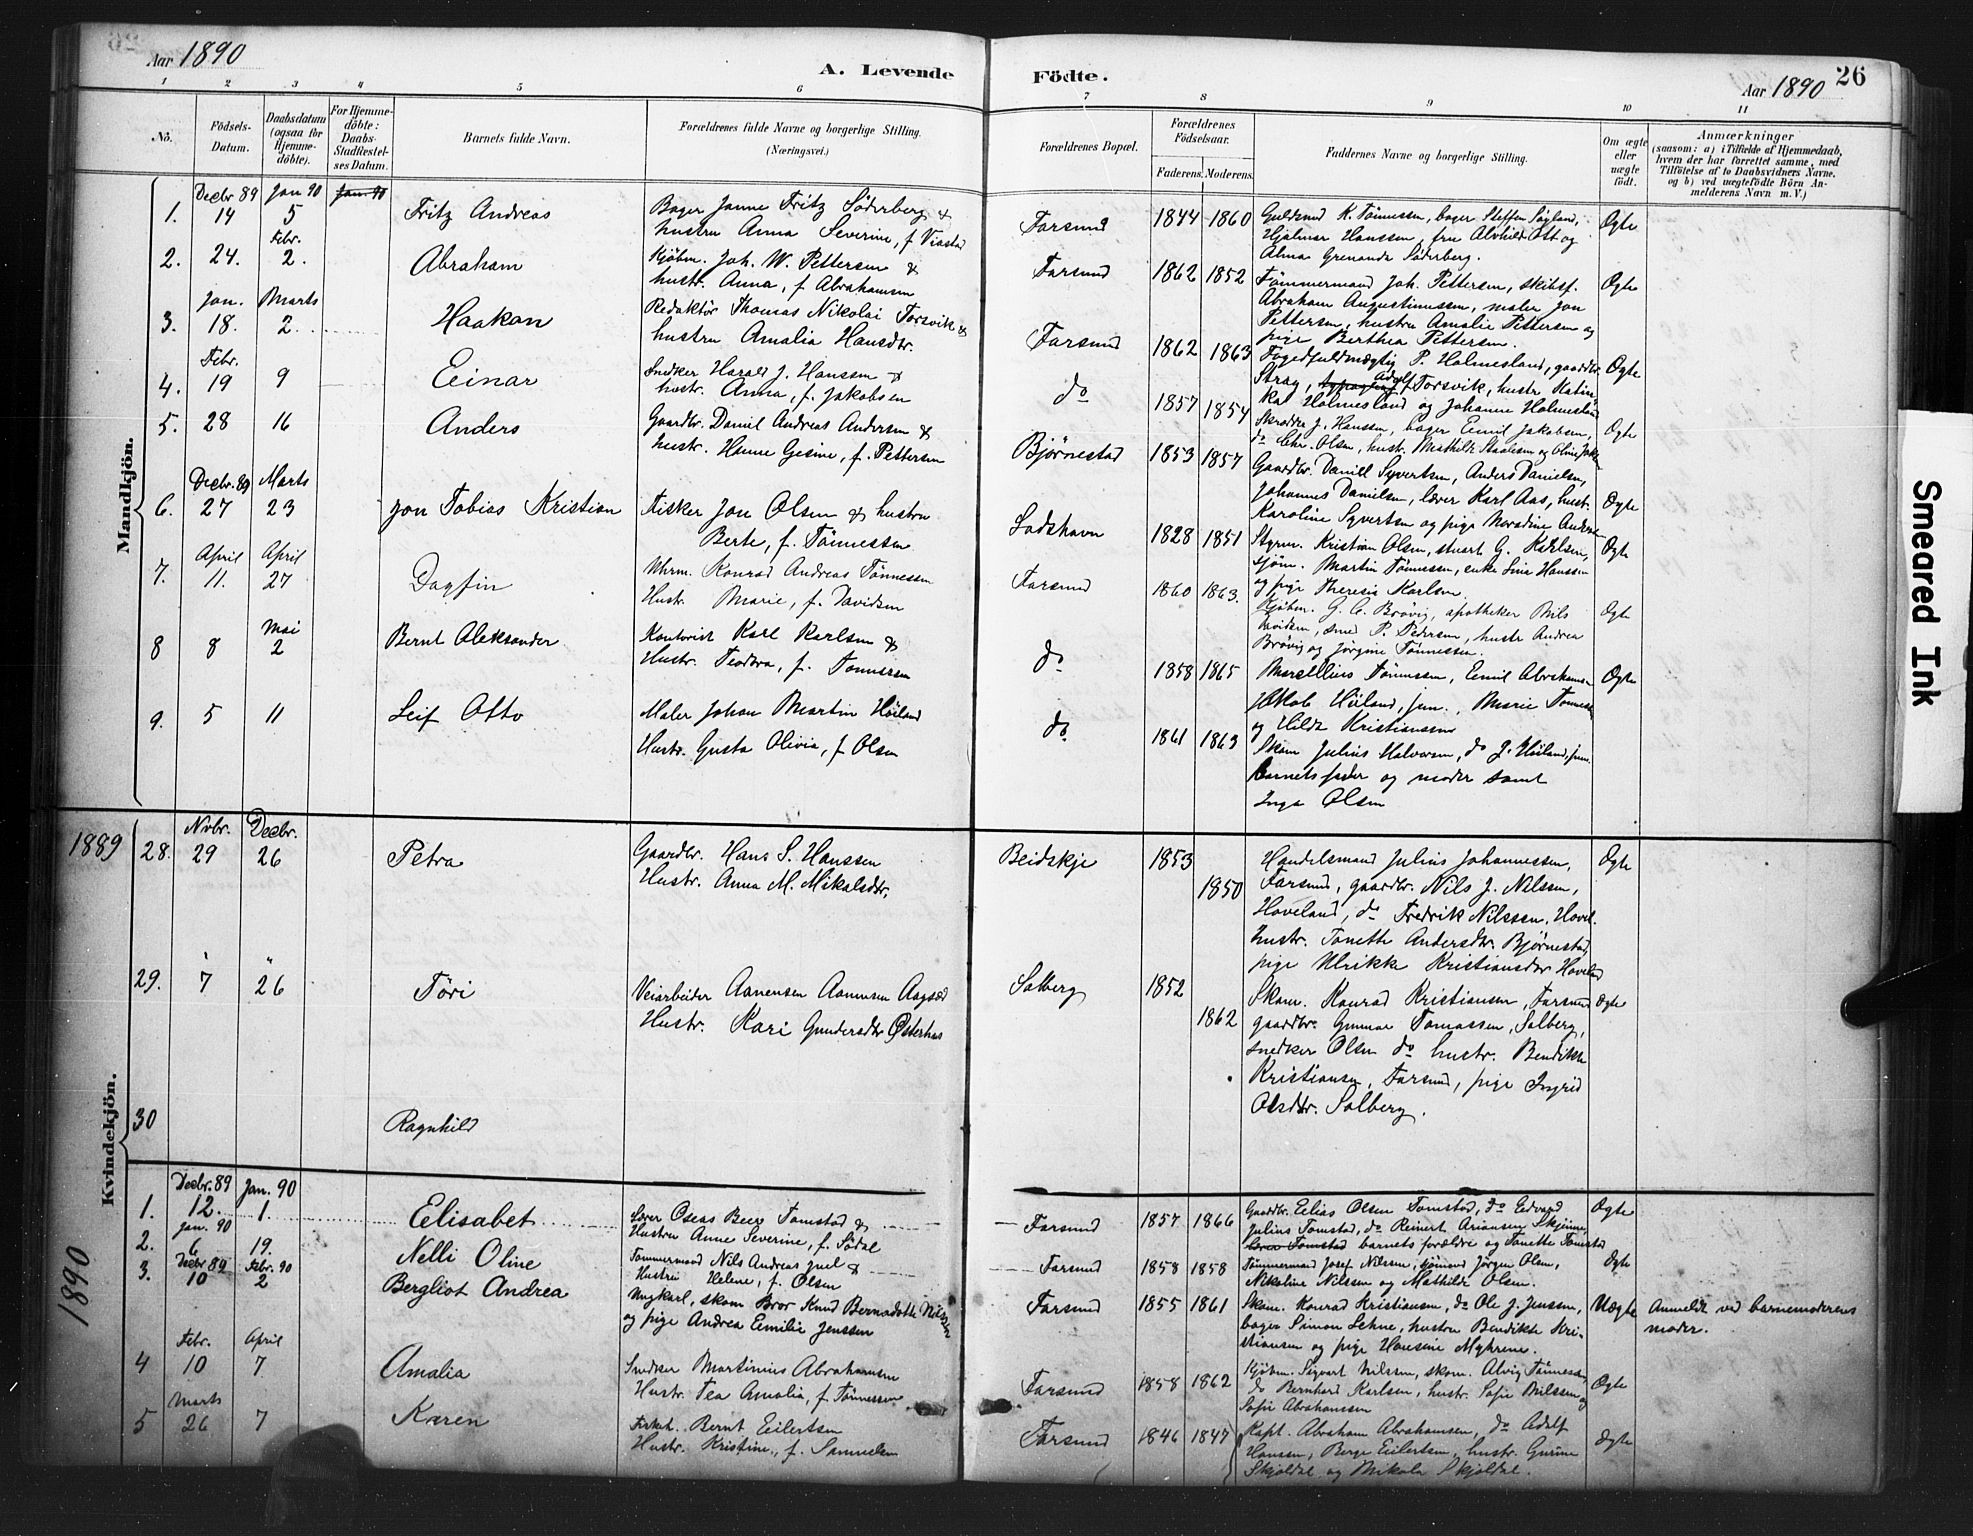 Aar 1890
A. Levende Födte.
Aar 1890
26
1 2 3 4 5 6 7 8 9 10 11
No.
Födsels-Datum.
Daabsdatum (ogsaa for Hjemme-döbte).
For Hjemme-döbte: Daabs-Stadfæstel-ses Datum.
Barnets fulde Navn.
Forældrenes fulde Navne og borgerlige Stilling. (Næringsvei.)
Forældrenes Bopæl.
Forældrenes Födselsaar.
Faderens. Moderens.
Faddernes Navne og borgerlige Stilling.
Om ægte eller uægte født.
Anmærkninger
(saasom: a) i Tilfælde af Hjemmedaab,
hvem der har forrettet samme, med
Tilföielse af to Daabsvidners Navne.
og b) ved uægtefödte Börn An-
melderens Navn m. V.)
Mandkjön.
Decbr 89 Jan 90 Jan 90
1. 14 5 Fritz Andreas
Bager Janne Fritz Söderberg &
hustru Anna Severine, f.
Farsund 1844 1860
Guldsmed K. Tönnessen, bager Steffen
Hjalmar Hanssen, fru Alvhild Ott og
Alma Grenande Söderberg.
Ægte
Febr.
2. 24. 2. Abraham
Kjöbm. Joh. W. Pettersen &
hustr. Anna, f. Abrahamsen
Farsund 1862 1852
Tömmermand Joh. Pettersen, skibsf.
Abraham Augustinussen, maler Jon
Pettersen, hustru Amalie Pettersen og
pige Berthea Pettersen.
Ægte
Jan. Marts
3. 18. 2. Haakon
Redaktør Thomas Nikolai Torsvik &
hustru Amalia Hansdtr.
Farsund 1862 1863
Fogedfuldmægtig P. Holmesland, gaardbr.
Stray, Adolf Torsvik, hustr. Katin-
ka Holmesland og Johanne Holmesland
Ægte
Febr.
4. 19 9 Einar
Snedker Harald J. Hanssen &
hustr. Anna, f. Jakobsen
do 1857 1854
Skrædder J. Hanssen, bager Emil Jakobsen,
do Chr. Olsen, hustr. Mathilde Staalesen og Oline
Ægte
5. 28 16 Anders
Gaardbr. Daniel Andreas Andersen &
hustr. Hanne Gesine, f. Pettersen
Bjørnestad 1853 1857
Gaardbr. Daniell Syvertsen, Anders Danielsen,
Johannes Danielsen, lærer Karl Aas, hustr.
Karoline Syvertsen og pige
Ægte
Decbr. 89 Marts
6. 27 23 Jon Tobias Kristian
Fisker Jon Olsen & hustru
Berte, f. Tönnessen
Lodshavn 1828 1851
Styrm. Kristian Olsen, stuert G. Karlsen,
sjöm. Martin Tönnessen, enke Line Hanssen
og pige Theresie Karlsen.
Ægte
April April
7. 11. 27 Dagfin
Uhrm. Konrad Andreas Tönnessen
Hustr. Marie, f. Davidsen
Farsund 1860 1863.
Kjöbm. G. C. Brövig, apotheker Nils
Davidsen, smed P. Pedersen, hustr. Andrea
Brövig og Jörgine Tönnessen.
Ægte
Mai
8 8 2 Bernt Aleksander
Kontorist Karl Karlsen &
Hustr. Teodora, f. Tönnessen
do 1858 1865
Marcellius Tönnessen, Emil Abrahamsen
Jakob Höiland, jun., Marie Tönnessen
og Hilda Kristianssen
Ægte
9. 5 11 Leif Otto
Maler Johan Martin Höiland
Hustr. Gusta Olivia, f. Olsen
do 1861 1863
Skom Julius Halvorsen, do J. Höiland, jun.
barnets fader og moder samt
Inga Olsen
Kvindekjön.
1889
Novbr. Decbr.
28. 29 26 Petra
Gaardbr. Hans S. Hanssen
Hustr. Anna M. Mikalsdtr,
Beidskje 1853 1850
Handelsmand Julius Johannessen,
Farsund, gaardbr. Nils J. Nilssen,
Hoveland, do Fredrik Nilssen, Hovel.
hustr. Tonette Andersdtr. Bjørnestad,
pige Ulrikke Kristiansdtr Hoveland
Ægte
29. 7 26 Töri
Veiarbeider Aanensen Aanensen
Hustr. Kari Gundersdtr Osterhus
Solberg 1852 1862
Skom. Konrad Kristiansen, Farsund
gaardbr. Gunnar Tomassen, Solberg,
snedker Olsen do hustr. Bendikte
Kristiansen, Farsund, pige Ingrid
Olsdtr. Solberg.
Ægte
30 Ragnhild
1890
Decbr. 89 Jan. 90
1. 12. 1. Elisabet
Lærer Oseas Berg Tomstad &
Hustru Anne Severine, f. Södal
Farsund 1857 1866
Gaardbr. Elias Olsen Tomstad, do Edvard
Julius Tomstad, do Reinert Ariansen Skjinne,
barnets forældre og Tonette Tomstad
Ægte
Jan. 90
2. 6 19. Nelli Oline
Tömmermand Nils Andreas Juel &
Hustru Helene, f. Olsen
Farsund 1858 1858
Tömmermand Josef Nilssen, sjömand Jörgen Olsen,
Nikoline Nilssen og Mathilde Olsen.
Ægte
Decbr 89 Febr. 90
3. 10 2 Bergliot Andrea
Ungkarl, skom Bror Knud Bernadotte Nilssen
og pige Andrea Emilie Jenssen
Farsund 1855 1861
Skom. Konrad Kristiansen, do Ole J. Jenssen,
bager Simon Lehne, hustru Bendikte Kri-
stiansen og pige Hansine Myhrene.
Uægte
Anmeldt ved barnemoderens
moder.
Febr. April
4 10 7 Amalia
Snedker Martinius Abrahamsen
Hustr. Tea Amalia, f. Tönnessen
Farsund 1858 1862
Kjöbm. Sigvart Nilssen, skom. Alvig Tönnessen,
do Bernhard Karlsen, hustr. Sofie Nilssen og
Sofie Abrahamsen
Ægte
Marts
5 26 7 Karen
Bernt Eilertsen
Hustr. Kristine, f. Samuelsen
Farsund 1846 1847
Kapt. Abraham Abrahamsen, do Adolf
Hanssen, Berge Eilertsen, hustr. Gurine
Skjoldal og Mikala Skjoldal.
Ægte
Smeared Ink